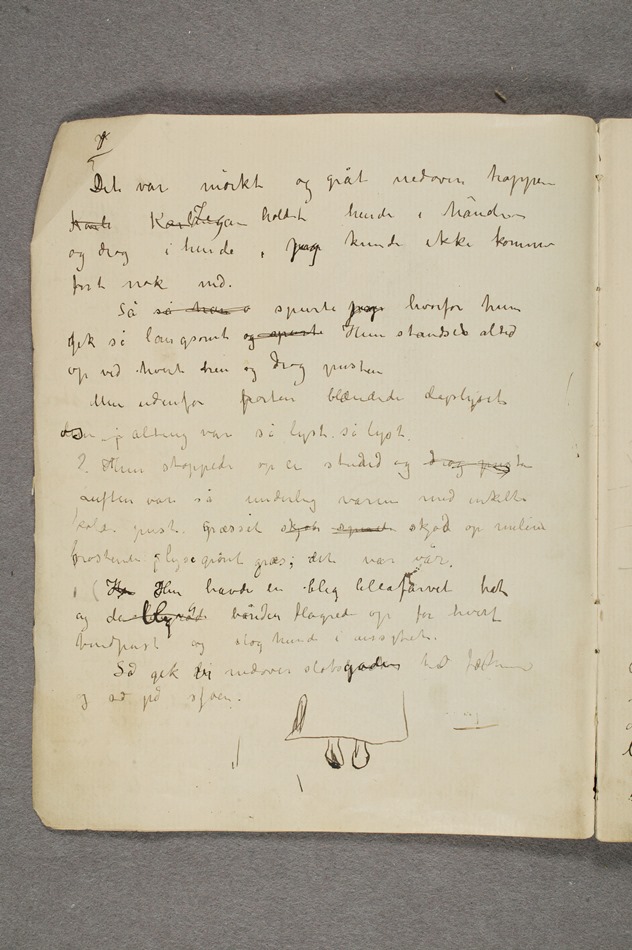 Det var mörkt og gråt nedover trappen
holdt hende i hånden
og drog i hende, kunde ikke komme
fort nok ned.
Så så han spurte hvorfor hun
gik så langsomt og spurte Hun standset altid
op ved hvert trin og drog pusten
Men udenfor porten blændede dagslyset
alting var så lyst så lyst.
2. Hun stoppede op en stund og drog pusten
Luften var så underlig varm med enkelte
kolde pust. Græsset skjöt skjöd op mellem
brostenene lysegrönt græs; det var vår.
1 ( Hun Hun havde en bleg lillafarvet hat
og de blegröde bånden flagrede op for hvert
vindpust og slog hende i ansigtet.
Så gik vi nedover slotsgaden
og så på sjöen.